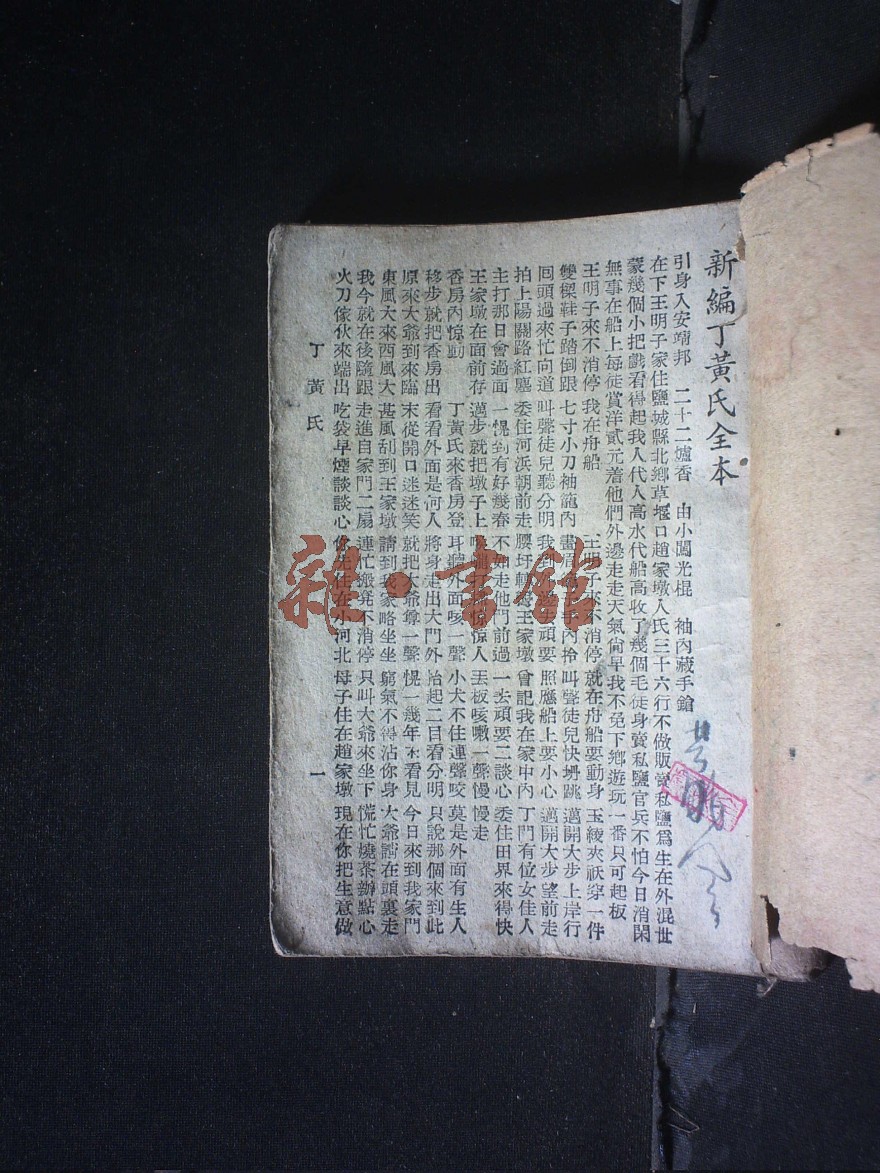 新編丁黃氏全本
引身入安靖邦 二十二爐香 由小闖光棍 袖內藏手鎗
在下王明子家住鹽城縣北鄉草堰口趙家墩人氏三十六行不做販賣私鹽爲生在外混世
蒙幾個小把戲看得起我人代人高水代船高收了幾個毛徒身賣私鹽官兵不怕今日消閑
無事在船上每徒賞洋貳元着他們外邊走走天氣尙早我不免下鄉遊玩一番只可起板
王明子來不消停 我在舟船 王明子來不消停 就在舟船要動身 玉綾夾袄穿一件
雙樑鞋子踏倒跟 七寸小刀袖籠內 手內拎 叫聲徒兒快搿跳 邁開大步上岸行
回頭過來忙向道 叫聲徒兒聽分明 我 頑要 照應船上要小心 邁開大步望前走
拍上陽關路紅塵 委住河浜朝前走 腰圩 王家墩 曾記我在家中內 丁門有位女佳人
主打那日會過面 一愰到有好幾春 不如走他門前過 一去頑要二談心 委住田界來得快
王家墩在面前存 邁步就把墩子上 咳 惊人 丟板咳嗽一聲慢慢走
香房內惊動 丁黃氏來香房登 耳聽外面咳一聲 小犬不住連聲咬 莫是外面有生人
移步就把香房出 看看外面是何人 將身走出大門外 抬起二目看分明 只說那個來到此
原來大爺到來臨 末從開口迷迷笑 就把大爺尊一聲 愰一幾年不看見 今日來到我家門
東風大來西風大 甚風刮到王家墩 請到我家略坐坐 窮氣不得沾你身 大爺請在頭裏走
我今就在後隨跟 走進自家門二扇 連忙搬凳不消停 只叫大爺來坐下 慌忙燒茶辦點心
火刀傢伙來端出 吃袋早煙談談心 你先住在小河北 母子住在趙家墩 現在你把生意做
丁黃氏
一
雜·書館